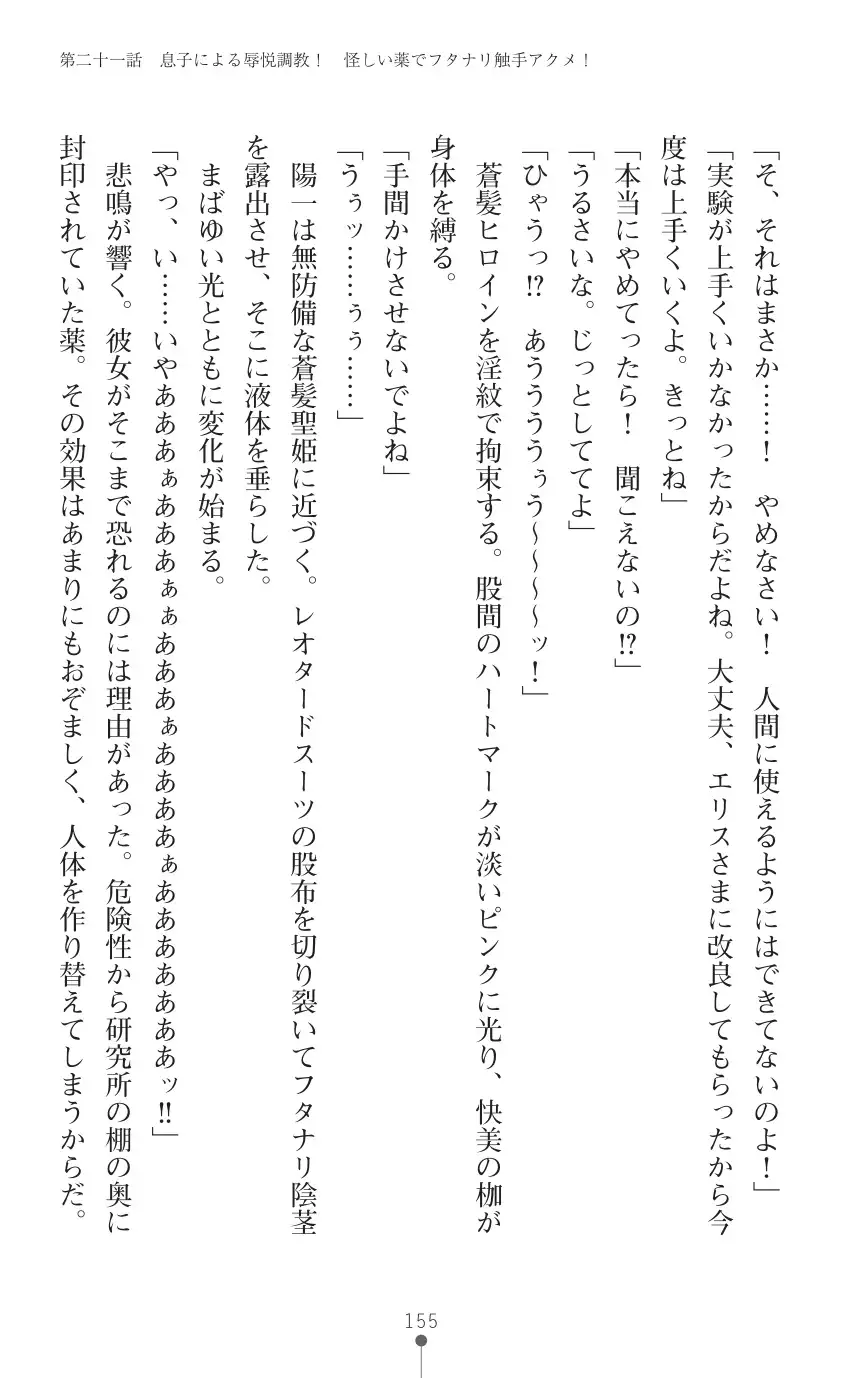 第二十一話　息子による辱悦調教！　怪しい薬でフタナリ触手アクメ！
「そ、それはまさか……！　やめなさい！　人間に使えるようにはできてないのよ！」
「実験が上手くいかなかったからだよね。大丈夫、エリスさまに改良してもらったから今
度は上手くいくよ。きっとね」
「本当にやめてったら！　聞こえないの!?」
「うるさいな。じっとしててよ」
「ひゃうっ!?　あううううぅう～～～～ッ！」
　蒼髪ヒロインを淫紋で拘束する。股間のハートマークが淡いピンクに光り、快美の枷が
身体を縛る。
「手間かけさせないでよね」
「うぅッ……ぅぅ……」
　陽一は無防備な蒼髪聖姫に近づく。レオタードスーツの股布を切り裂いてフタナリ陰茎
を露出させ、そこに液体を垂らした。
　まばゆい光とともに変化が始まる。
「やっ、い……いやあああぁあああぁぁあああぁああああぁああああああああッ!!」
　悲鳴が響く。彼女がそこまで恐れるのには理由があった。危険性から研究所の棚の奥に
封印されていた薬。その効果はあまりにもおぞましく、人体を作り替えてしまうからだ。
155